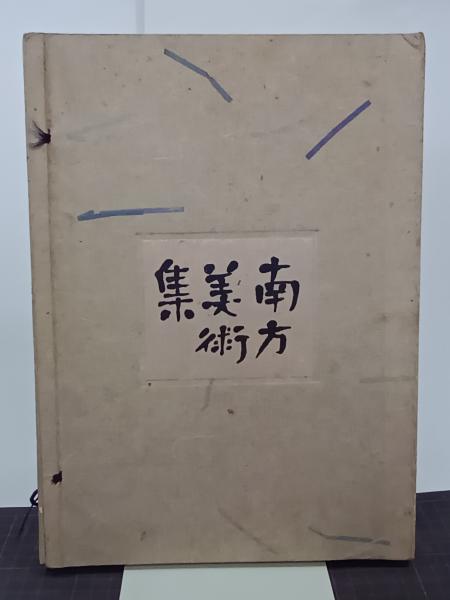 南方
美術
集